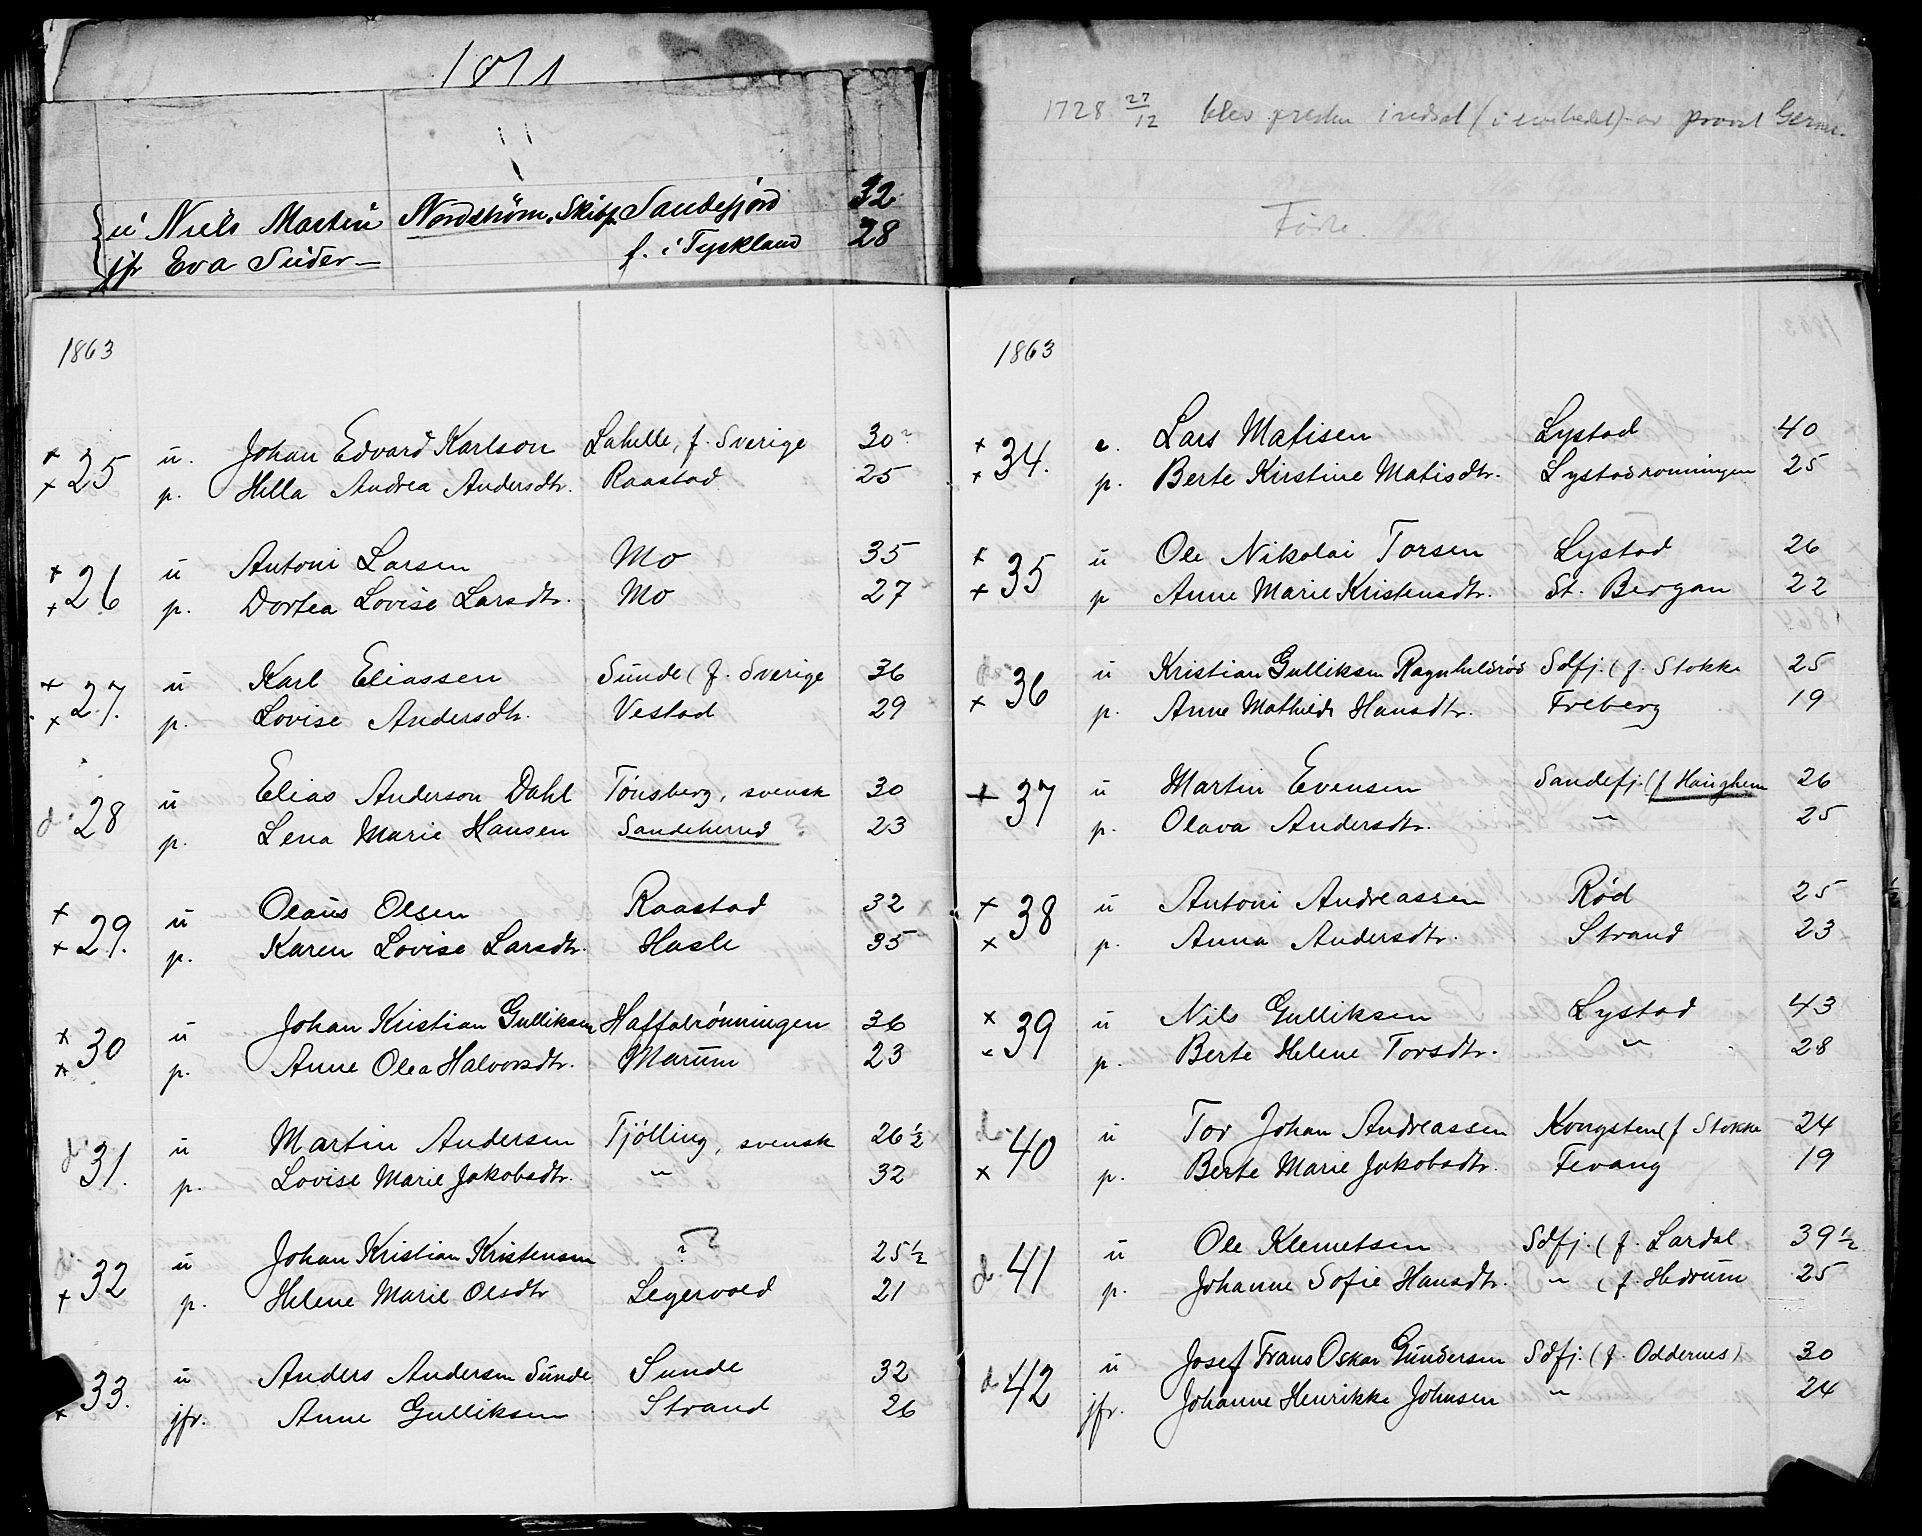 1871
u Niels Martin Nordstrøm, Skibsf. Sandefjord 32
jfr Eva Suder f. i Tyskland 28
1863
+ + 25 u. Johan Edvard Karlson Lahelle, f. Sverige 30?
p. Hella Andrea Andersdtr. Raastad 25
+ + 26 u Antoni Larsen Mo 35
p. Dortea Lovise Larsdtr. Mo 27
+ + 27. u Karl Eliassen Sunde (f. Sverige 36
p. Lovise Andersdtr. Vestad 29
d. 28 u Elias Anderson Dahl Tönsberg, svensk 30
p. Lena Marie Hansen Sandeherred 23
+ + 29. u Olaus Olsen Raastad 32
p. Karen Lovise Larsdtr. Hasle 35
+ + 30 u Johan Kristian Gulliksen Haffalrönningen 36
p. Anne Olea Halvorsdtr. Marum 23
d 31. u Martin Andersen Tjölling, svensk 26½
p. Lovise Marie Jakobsdtr. " 32
d. + 32 u Johan Kristian Kristensen ? ? 25½
p. Helene Marie Olsdtr Legervold 21
+ 33. u Anders Andersen Sunde Sunde 32
jfr. Anne Gulliksen Strand 26
1728 27/12 blev presten indsat (i av provst
Føde.
1863
+ + 34. e. Lars Matisen Lystad 40
p. Berte Kirstine Matisdtr. Lystadrönningen 25
+ + 35 u Ole Nikolai Torsen Lystad 26
p Anne Marie Kristensdtr. St. Bergan 22
d + 36 u Kristian Gulliksen Ragnhildsröd Sdfj. (f. Stokke 25
p. Anne Mathilde Hansdtr. Freberg 19
+ 37 u Martin Evensen Sandefj. (f Haughem 26
p. Olava Andersdtr. " 25
+ + 38 u Antoni Andreassen Rød 25
p. Anna Andersdtr. Strand 23
x x 39 u Nils Gulliksen Lystad 43
p. Berte Helene Torsdtr. " 28
d. x 40 u Tor Johan Andreassen Kongsten (f Stokke 24
p. Berte Marie Jakobsdtr. Fevang 19
d. 41 u Ole Klemetsen Sdfj. (f. Lardal 39½
p. Johanne Sofie Hansdtr. " (f. Hedrum 25
d. 42 u Josef Frans Oskar Gundersen Sdfj. (f. Oddernes) 30
jfr. Johanne Henrikke Johnsen " 24